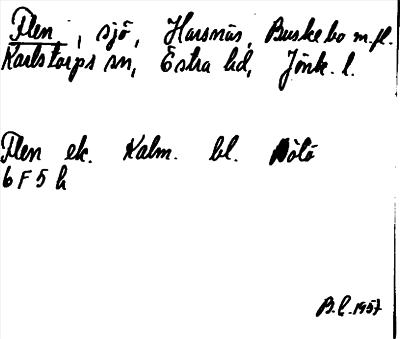 Flen, sjö, Harsnäs, Buskebo m.fl.
Karlstorps sn, Östra hd, Jönk. l.
Flen ek. Kalm. bl.
6 F 5 h
B.L. 1957